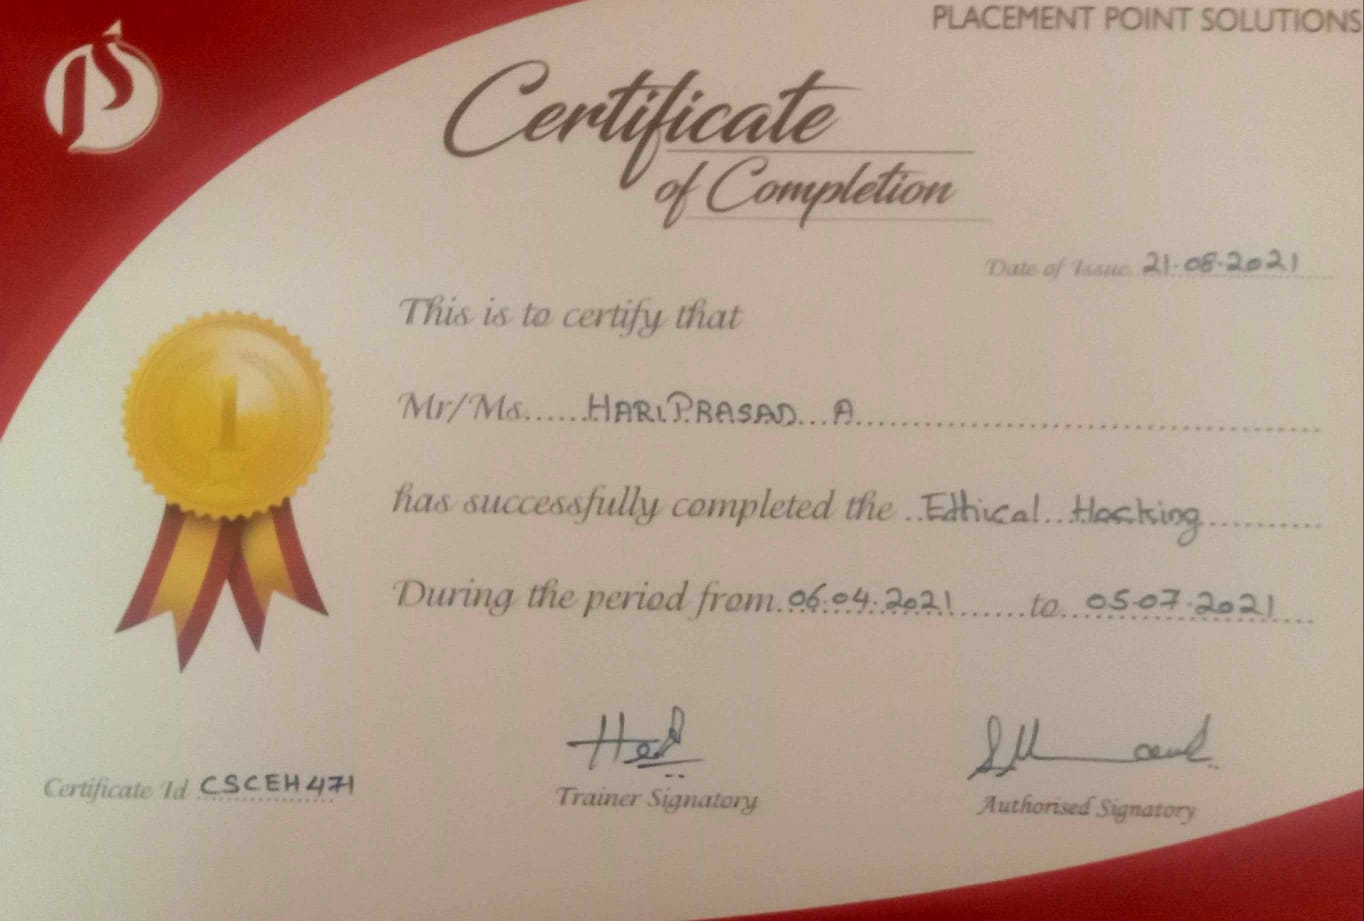 PLACEMENT POINT SOLUTIONS
Certificate
of Completion
Date of Issue 21.08.2021
This is to certify that
1
Mr/Ms......HARI.PRASAD...A
has successfully completed the ..Ethical..Hacking
During the period from..06.04.2021......to...05.07.2021
Certificate Id CSCEH471
Trainer Signatory
Authorised Signatory